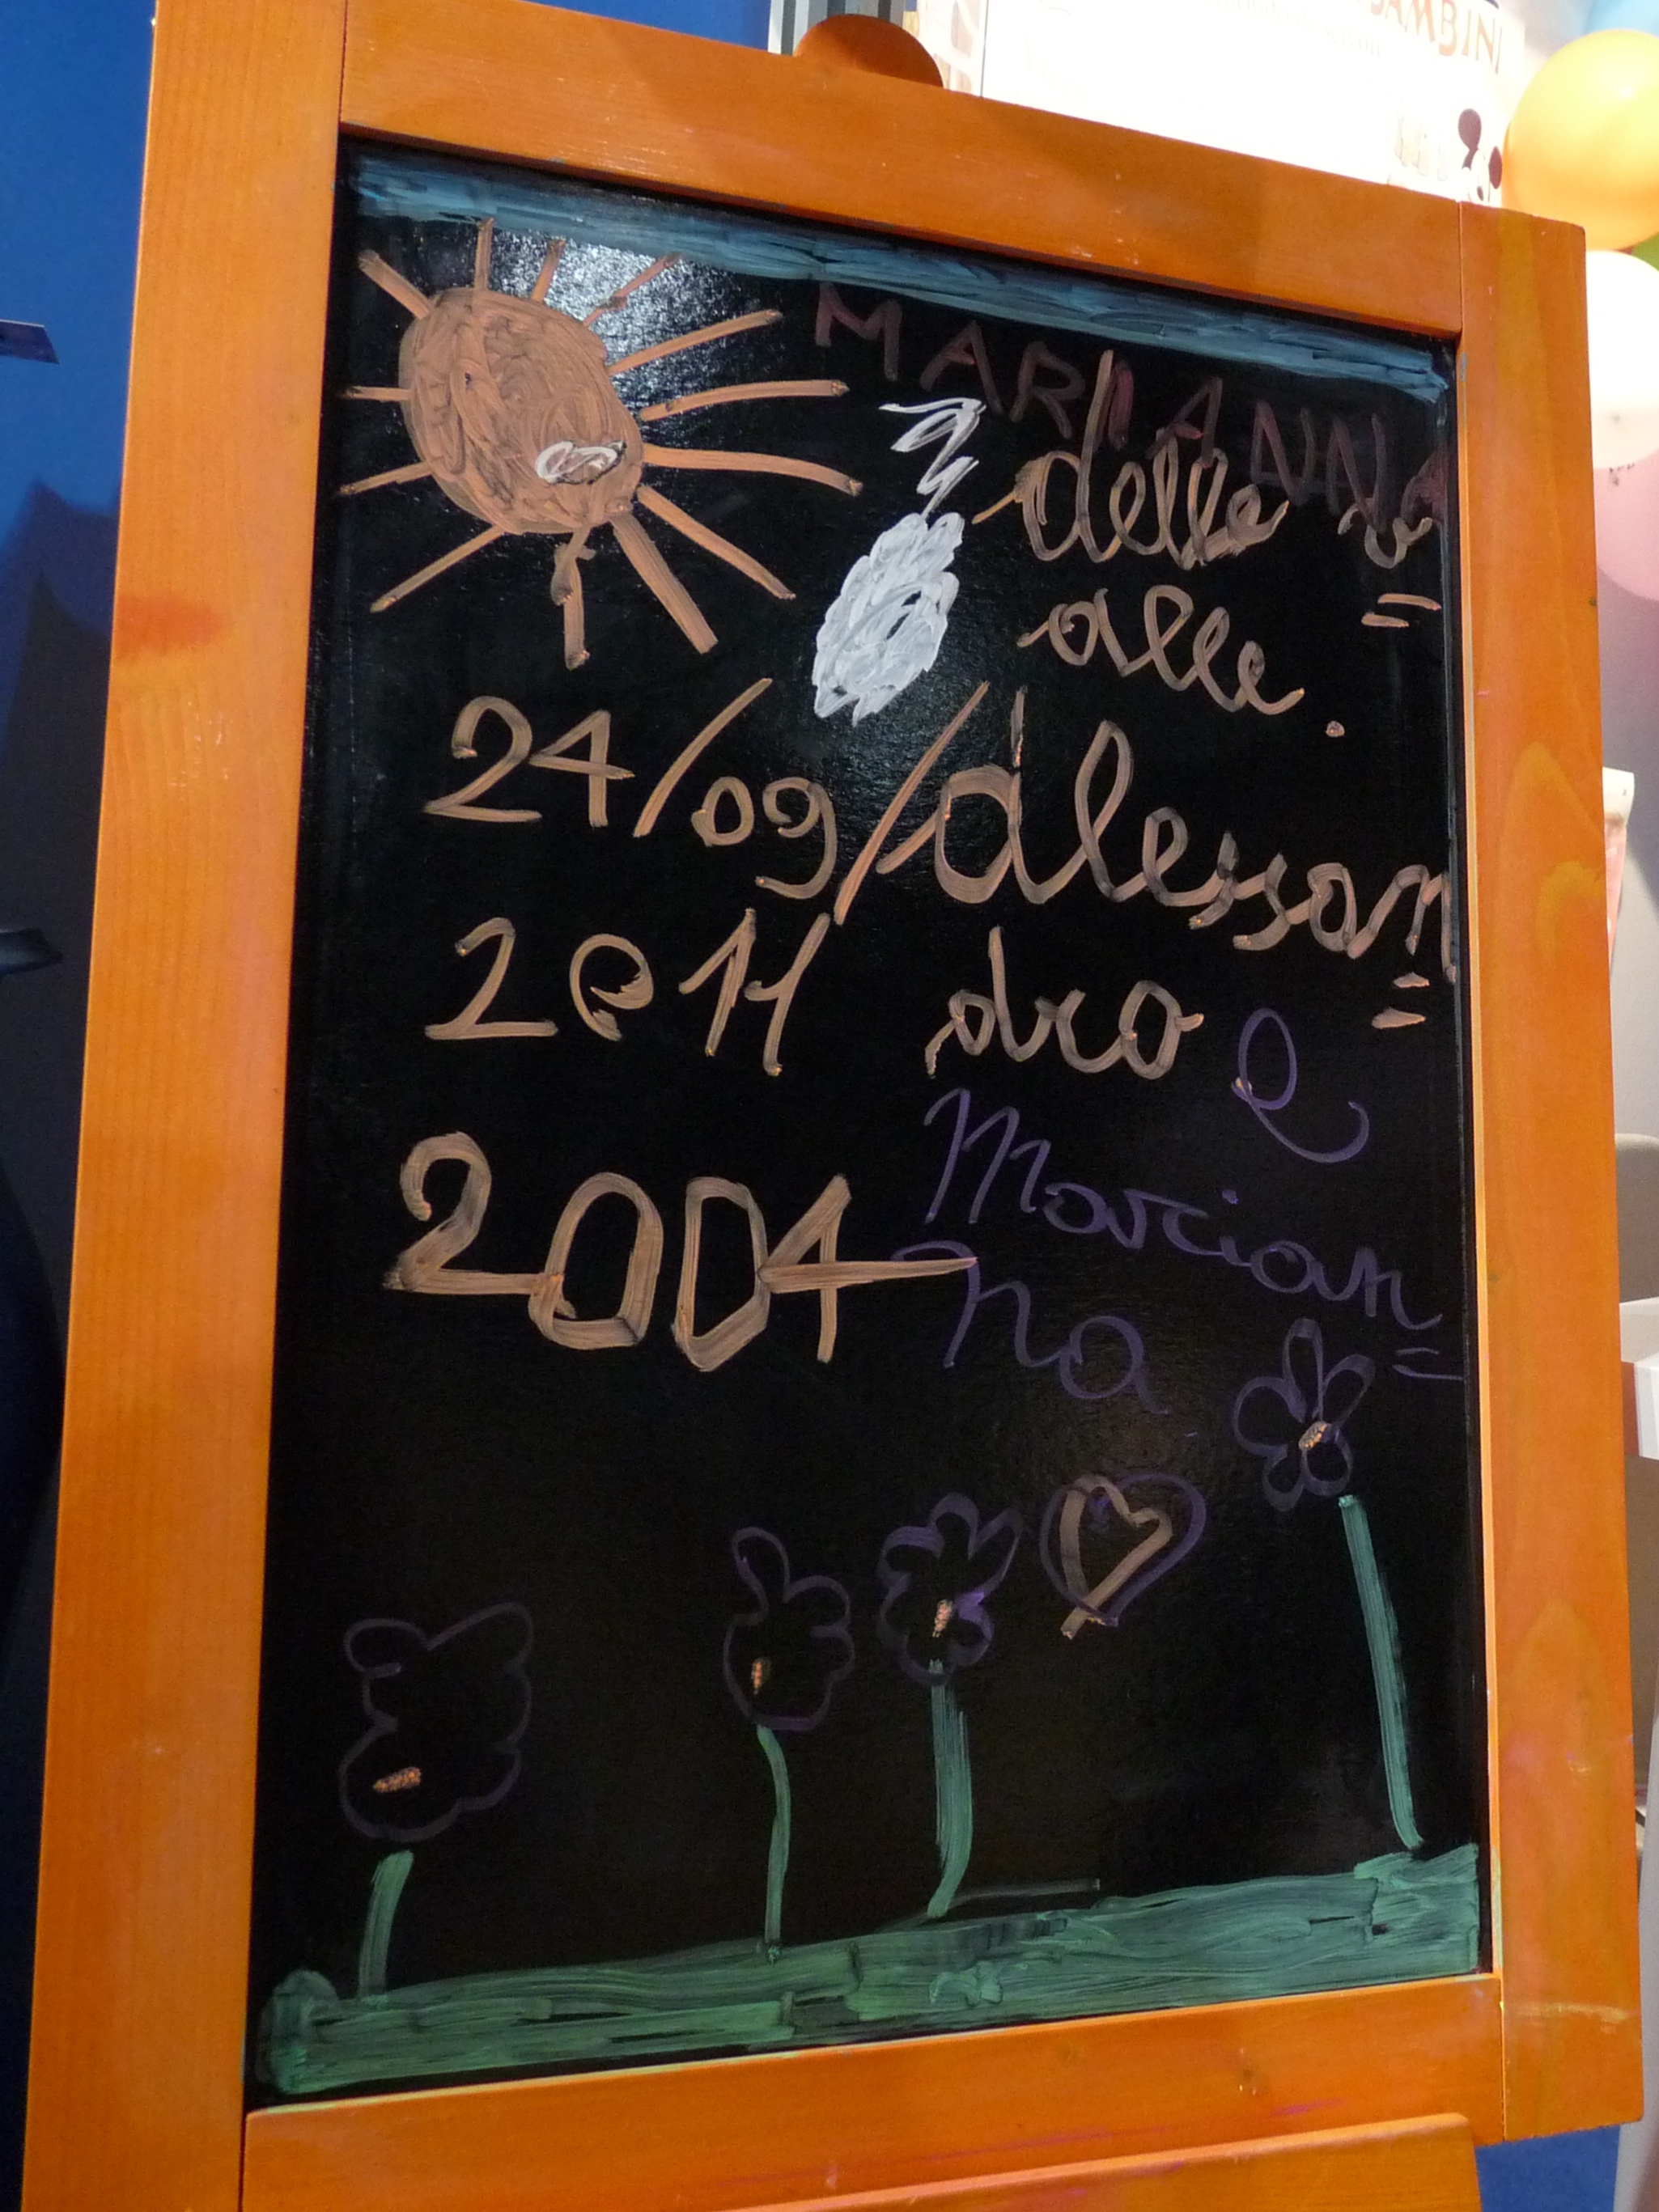 BAMBINI
MARIANNA
delle v=
alle.
24/09/
2011
Alessan=
dro e
Marian=
na
2004